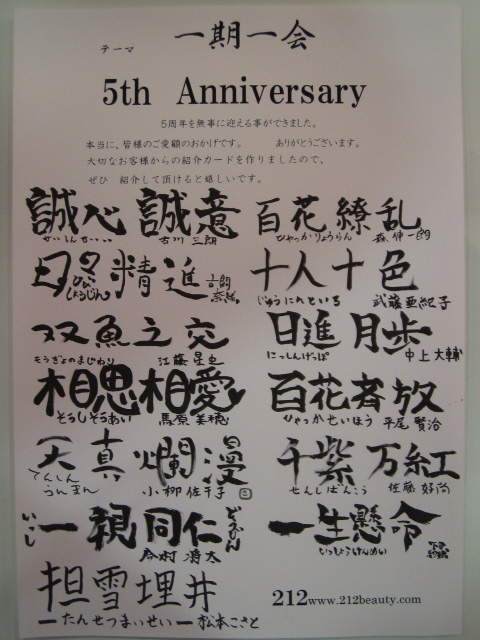 テーマ
一期一会
5th Anniversary
5周年を無事に迎える事ができました。
本当に、皆様のご愛顧のおかげです。 ありがとうございます。
大切なお客様からの紹介カードを作りましたので、
ぜひ 紹介して頂けると嬉しいです。
誠心誠意 百花繚乱
せいしんせいい 古川 三朗 ひゃっかりょうらん 森 伸一朗
日々精進 十人十色
ひびしょうじん じゅうにんといろ 武藤亜紀子
双魚之交 日進月歩
そうぎょのまじわり 江藤 星史 にっしんげっぽ 中上 大輔
相思相愛 百花斉放
そうしそうあい 馬原 美穂 ひゃっかせいほう 平尾 賢治
天真爛漫 千紫万紅
てんしんらんまん 小柳 佐千子 せんしばんこう 佐藤 好尚
一視同仁 一生懸命
いっしどうじん 今村 将太 いっしょうけんめい
担雪埋井
ーたんせつまいせいー 松本こさと
212 www.212beauty.com